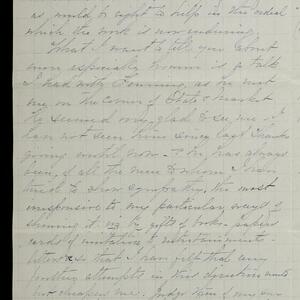 as would be right to help in the ordeal
which the work is now enduring.
What I want to tell you about
more especially however is a talk
I had with Fleming, as he met
me on the corner of State & Market
He seemed very glad to see me. I
had not seen him since last Thanks
giving until now. He has always
been, of all the men to whom I have
tried to show sympathy, the most
unresponsive to my particular ways of
showing it, by gifts of books, papers
cards of invitation to entertainments
letters so that I have felt that any
further attempts in this direction would
but cheapen me. Judge then of my